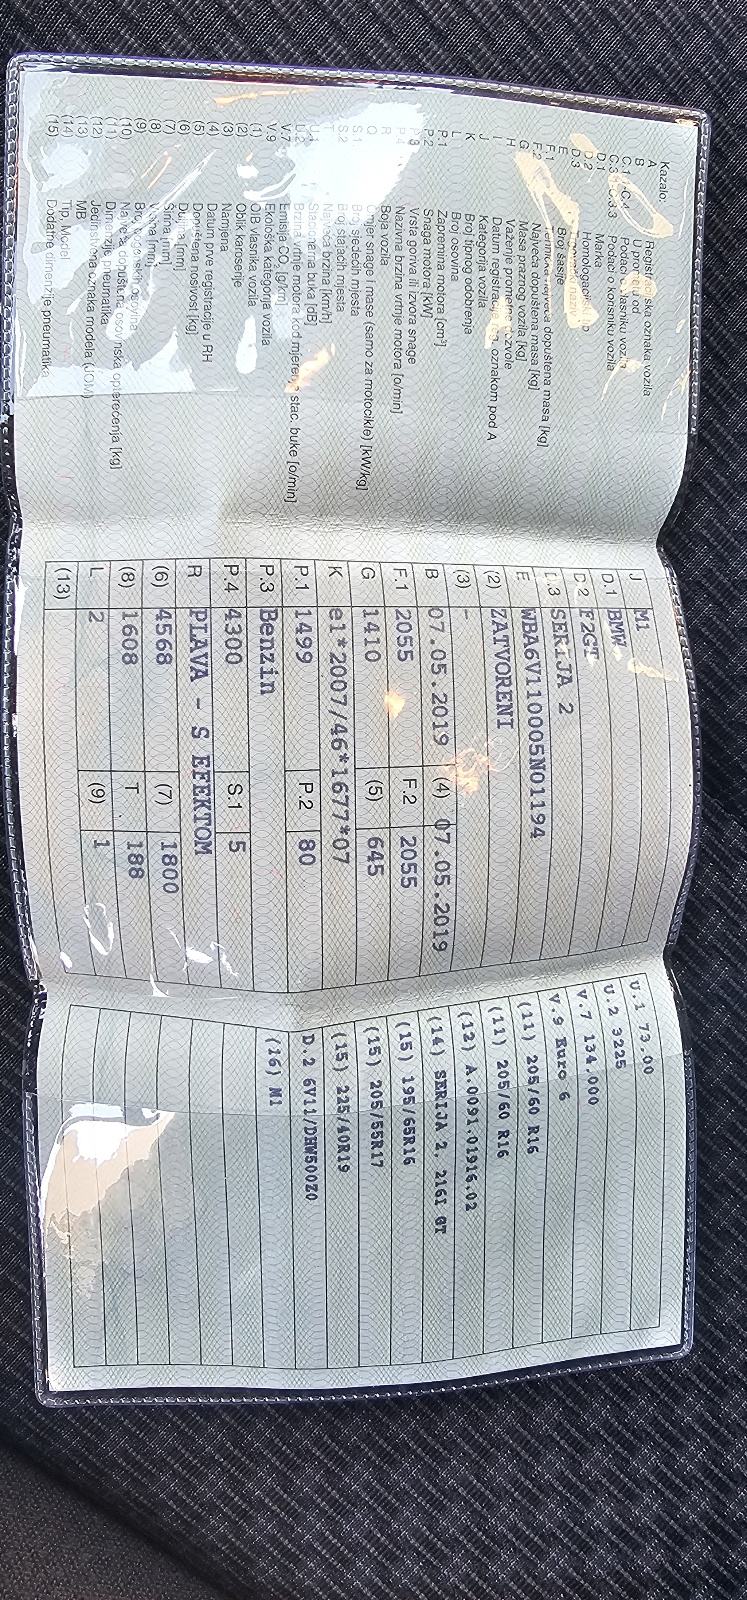 Kazalo:
A Registracijska oznaka vozila
B U prometu od
C.1 -C.4 Podaci o vlasniku vozila
C.3.1-C.3.3 Podaci o korisniku vozila
D.1 Marka
D.2 Homologacijski tip
D.3
E Broj šasije
F.1 Tehnička najveća dopuštena masa [kg]
F.2 Najveća dopuštena masa [kg]
G Masa praznog vozila [kg]
H Važenje prometne dozvole
I Datum registracije reg. oznakom pod A
J Kategorija vozila
K Broj tipnog odobrenja
L Broj osovina
P.1 Zapremina motora [cm³]
P.2 Snaga motora [kW]
P.3 Vrsta goriva ili izvora snage
P.4 Nazivna brzina vrtnje motora [o/min]
R Boja vozila
Q Omjer snage i mase (samo za motocikle) [kW/kg]
S.1 Broj sjedećih mjesta
S.2 Broj stajaćih mjesta
T Najveća brzina [km/h]
U.1 Stacionarna buka [dB]
U.2 Brzina vrtnje motora kod mjerenja stac. buke [o/min]
V.7 Emisija CO₂ [g/km]
V.9 Ekološka kategorija vozila
(1) OIB vlasnika vozila
(2) Oblik karoserije
(3) Namjena
(4) Datum prve registracije u RH
(5) Dopuštena nosivost [kg]
(6) Dužina [mm]
(7) Širina [mm]
(8) Visina [mm]
(9) Broj pogonskih osovina
(10) Najveća dopuštena osovinska opterećenja [kg]
(11) Dimenzije pneumatika
(12) Jedinstvena oznaka modela (JOM)
(13) MB
(14) Tip, Model
(15) Dodatne dimenzije pneumatika
J M1
D.1 BMW
D.2 F2GT
D.3 SERIJA 2
E WBA6V110005N01194
(2) ZATVORENI
(3) -
B 07.05.2019 (4) 07.05.2019
F.1 2055 F.2 2055
G 1410 (5) 645
K e1*2007/46*1677*07
P.1 1499 P.2 80
P.3 Benzin
P.4 4300 S.1 5
R PLAVA - S EFEKTOM
(6) 4568 (7) 1800
(8) 1608 T 188
L 2 (9) 1
(13)
U.1 73.00
U.2 3225
V.7 134.000
V.9 Euro 6
(11) 205/60 R16
(11) 205/60 R16
(12) A.0091.01916.02
(14) SERIJA 2. 216I GT
(15) 195/65R16
(15) 205/55R17
(15) 225/40R19
D.2 6V11/DHW500Z0
(16) M1